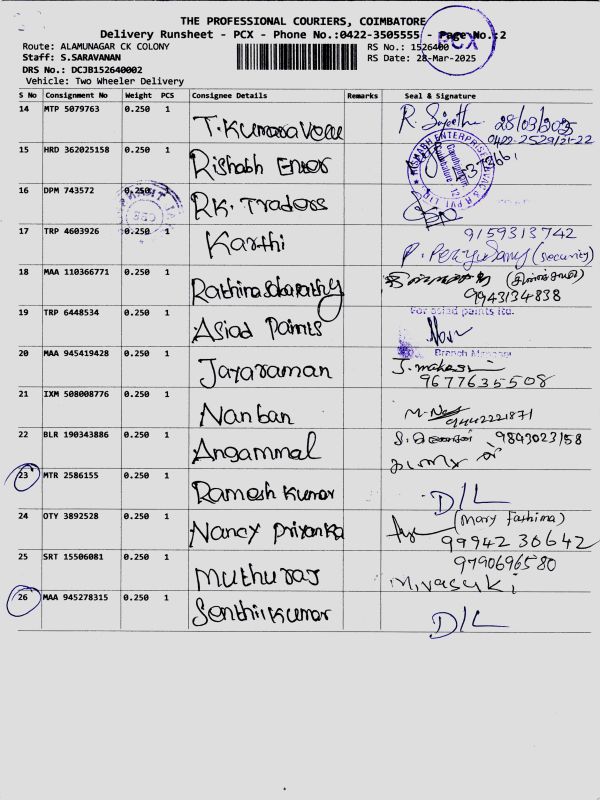 THE PROFESSIONAL COURIERS, COIMBATORE
Delivery Runsheet - PCX - Phone No.:0422-3505555 - Page No.:2
PCX
Route: ALAMUNAGAR CK COLONY
RS No.: 1526400
Staff: S.SARAVANAN
RS Date: 28-Mar-2025
DRS No.: DCJB152640002
Vehicle: Two Wheeler Delivery
S No Consignment No Weight PCS Consignee Details Remarks Seal & Signature
14 MTP 5079763 0.250 1 T. Kumaravelu R. Sujeetha 28/03/2025
0422-2529121-22
15 HRD 362025158 0.250 1 Rishabh Enter
16 DPM 743572 0.250 1 RK. Traders
17 TRP 4603926 0.250 1 Karthi 9159313742
P. Periyasamy (security)
18 MAA 110366771 0.250 1 Rathinasabarathy
9943134838
19 TRP 6448534 0.250 1 Asiad Paints For asiad paints ltd.
Branch Manager
20 MAA 945419428 0.250 1 Jayaraman J. mahesh
9677635508
21 IXM 508008776 0.250 1 Nanban 9442221871
22 BLR 190343886 0.250 1 Angammal 9843023158
23 MTR 2586155 0.250 1 Ramesh Kumar D/L
24 OTY 3892528 0.250 1 Nancy Priyanka (Mary Fathima)
9994230642
25 SRT 15506081 0.250 1 Muthuraj 9790696580
M.vasuki
26 MAA 945278315 0.250 1 Senthilkumar D/L